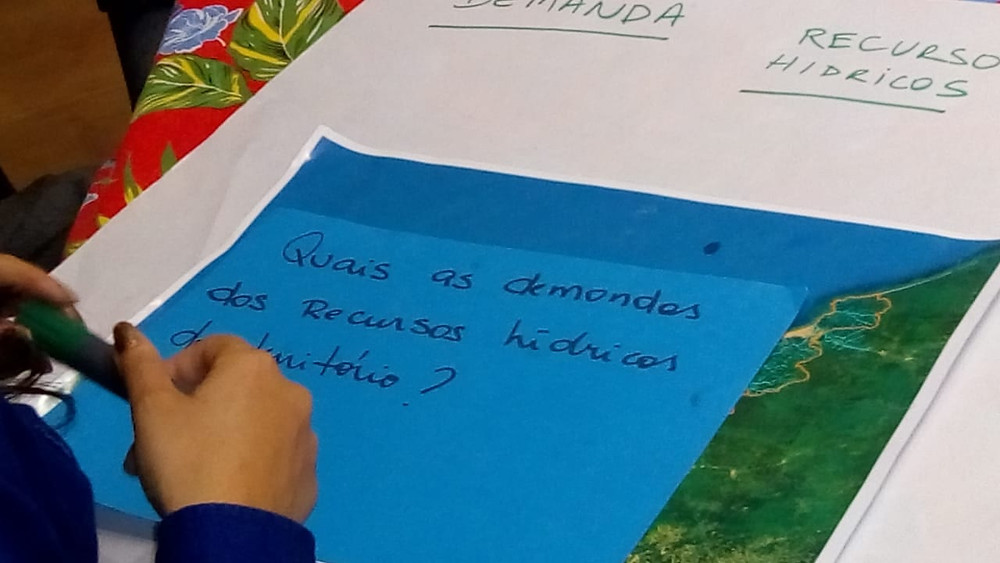 DEMANDA
RECURSO
HIDRICOS
Quais as demandas
dos Recursos hidricos
?